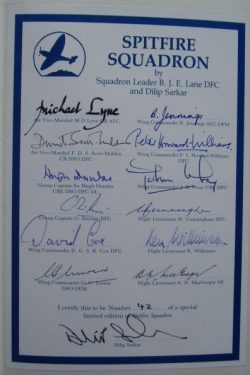 SPITFIRE
SQUADRON
by
Squadron Leader B. J. E. Lane DFC
and Dilip Sarkar
Michael Lyne
B. Jennings
Air Vice-Marshal M D Lyne CB AFC
Wing Commander B. J. Jennings AFC DFM
Peter Howard-Williams
Air Vice Marshal F. D. S. Scott-Malden
CB DSO DFC
Wing Commander P. I. Howard-Williams
DFC
Hugh Dundas
Group Captain Sir Hugh Dundas
CBE DSO DFC DL
Wing Commander
DFC
Group Captain G. Sinclair
DFC
W Cunningham
Flight Lieutenant W. Cunningham DFC
David Cox
Ken Wilkinson
Wing Commander D. G. S. R. Cox DFC
Flight Lieutenant K. Wilkinson
G C Unwin
A N MacGregor
Wing Commander G. C. Unwin
DSO DFM
Flight Lieutenant A. N. MacGregor AE
I certify this to be Number 42 of a special
limited edition of Spitfire Squadron
Dilip Sarkar